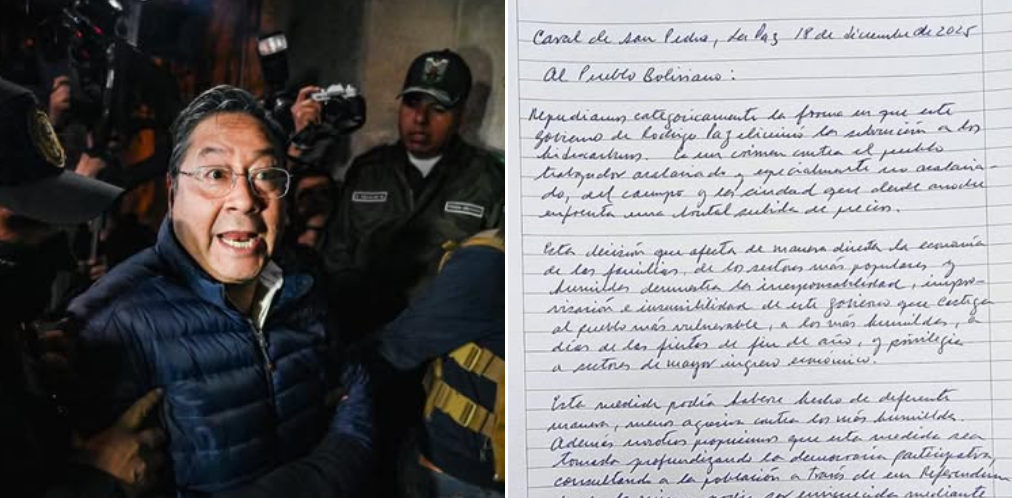 Caral de San Pedro, La Paz 18 de diciembre de 2025
Al Pueblo Boliviano:
Repudiamos categóricamente la forma en que este
gobierno de Rodrigo Paz eliminó la subvención a los
hidrocarburos. Es un crimen contra el pueblo
trabajador asalariado y especialmente no asalaria-
do, del campo y la ciudad que desde anoche
enfrenta una brutal subida de precios.
Esta decisión que afecta de manera directa la economía
de las familias, de los sectores más populares y
humildes demuestra la irresponsabilidad, impro-
visación e insensibilidad de este gobierno que castiga
al pueblo más vulnerable, a los más humildes, a
días de las fiestas de fin de año, y privilegia
a sectores de mayor ingreso económico.
Esta medida podía haberse hecho de diferente
manera, menos agresiva contra los más humildes.
Además nosotros propusimos que esta medida sea
tomada profundizando la democracia participativa,
consultando a la población a través de un Referendum